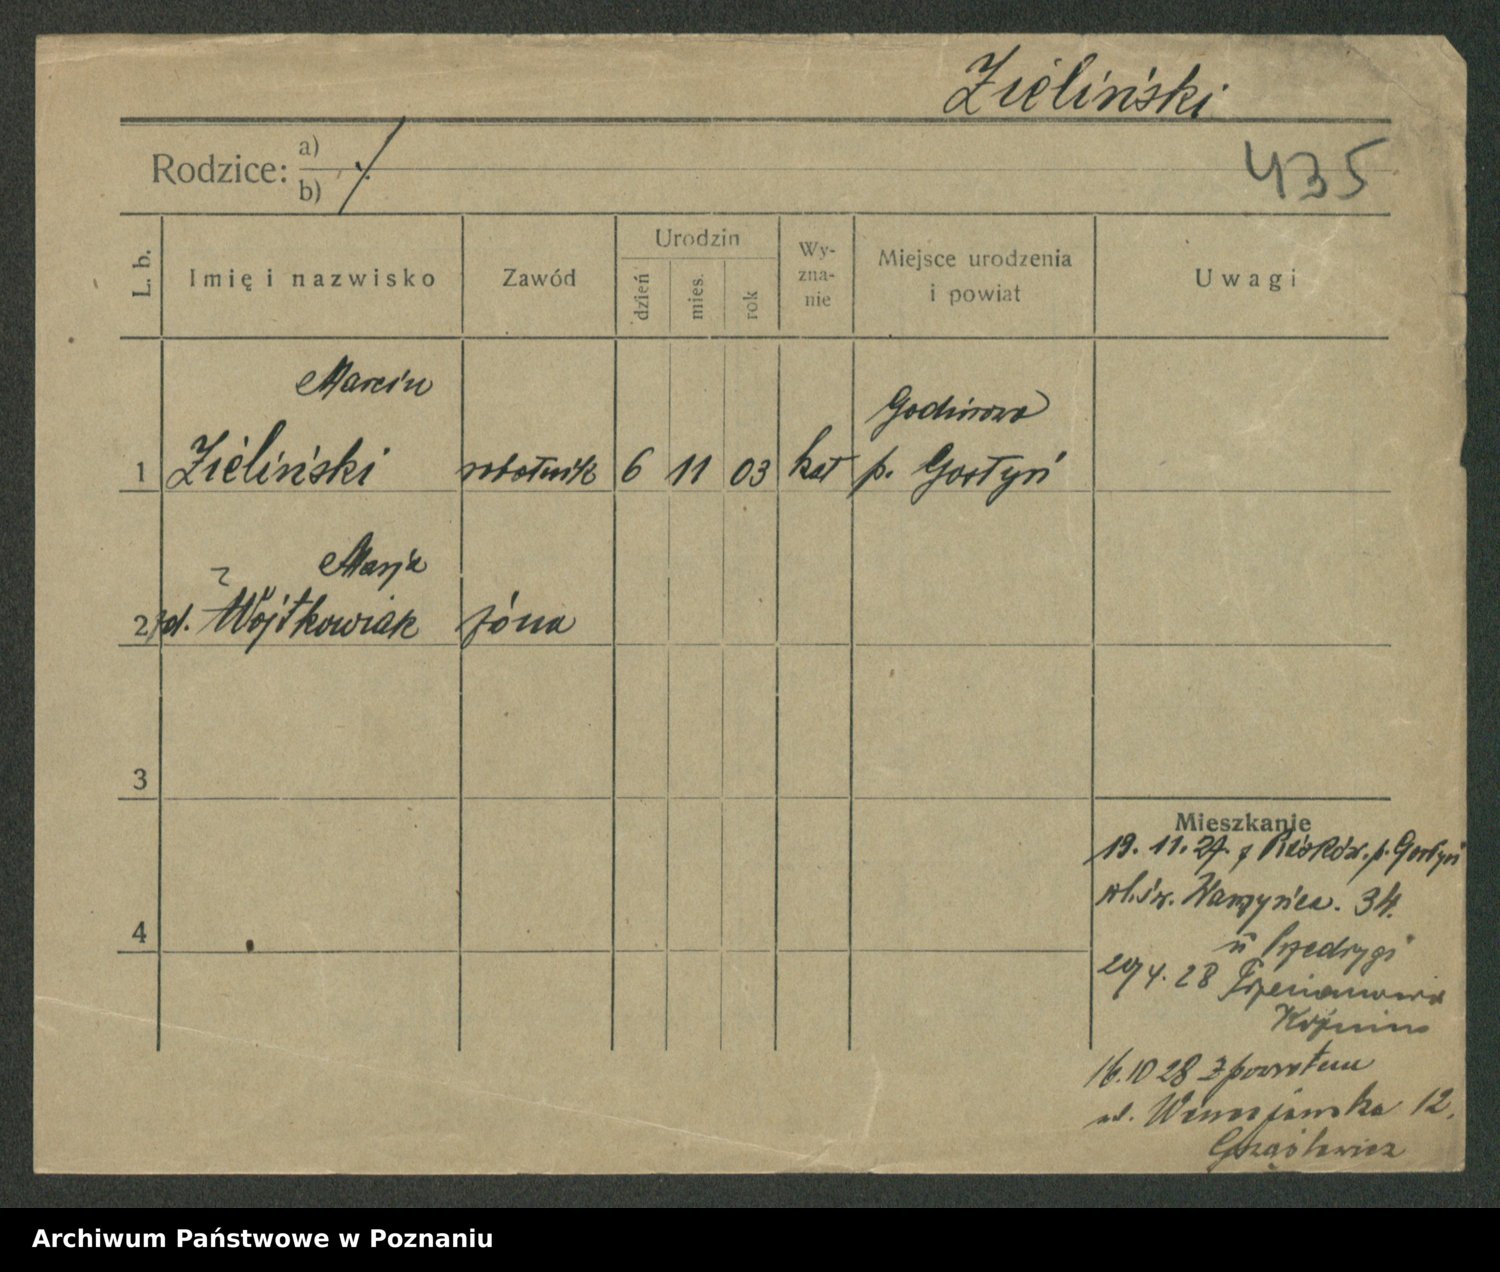 Zieliński
Rodzice: a)
b)
435
L. b.
Imię i nazwisko
Zawód
Urodzin
dzień
mies.
rok
Wy-
zna-
nie
Miejsce urodzenia
i powiat
Uwagi
Marcin
Godurowo
1 Zieliński robotnik 6 11 03 kat p. Gostyń
Marja
2 d. Wojtkowiak żona
3
4
Mieszkanie
19. 11. 27. z Piasków. p. Gostyń
ul. św. Wawrzyńca. 34.
u
4. 28
Koźmin
16. 10 28 z powrotem
ul. 12.
Archiwum Państwowe w Poznaniu